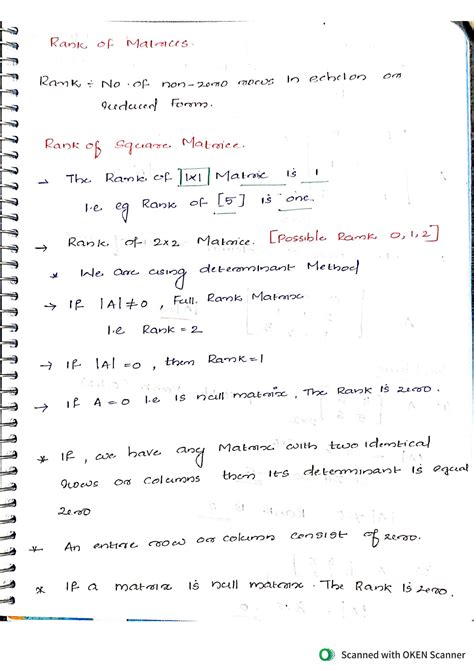 Rank of Matrices.
Rank ÷ No. of non-zero rows in echelon or
reduced Form.
Rank of Square Matrice.
→ The Rank of |1x1| Matrix is 1
i.e eg Rank of [5] is one.
→ Rank of 2x2 Matrice. [Possible Rank 0,1,2]
* We are using determinant Method
→ If |A|≠0, Full Rank Matrix
i.e Rank = 2
→ If |A| = 0, then Rank = 1
→ If A = 0 i.e is null matrix, The Rank is zero.
* If, we have any Matrix with two identical
rows or columns then its determinant is equal
zero
* An entire row or column consist of zero.
* If a matrix is null matrix. The Rank is zero.
Scanned with OKEN Scanner